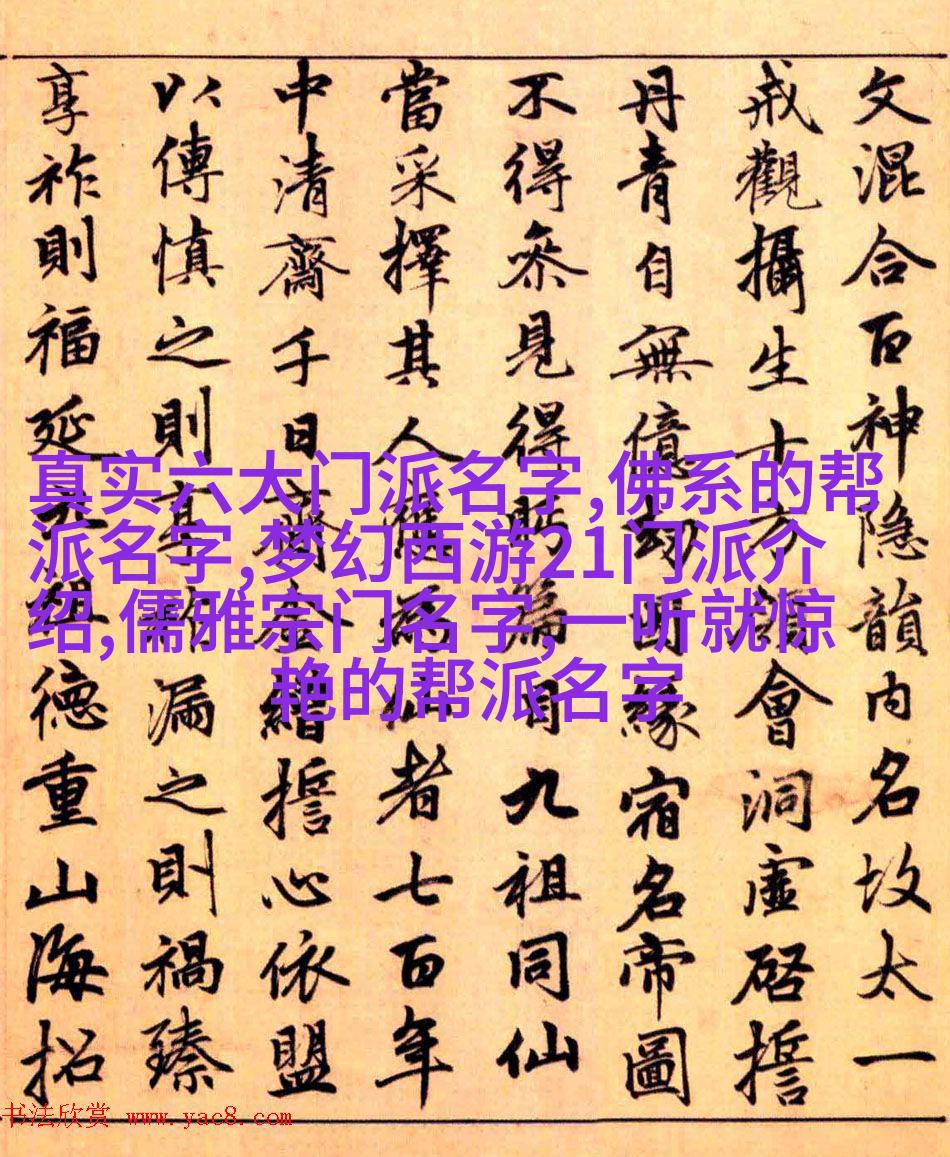 文混合百神隐韻内名故太一
戒觀攝生十方領會洞虛啓誓
丹青自無億劫明緣宿名帝圖
不得叅見得眄篇目九祖同仙
當采擇其人應為仙者七百年
中清齋千日齎金繒誓心依盟
以傳慎之則享祚漏之則禍臻
享祚則福延祖德重山海招
真实六大门派名字,佛系的帮
派名字,梦幻西游21门派介
绍,儒雅宗门名字,一听就惊
艳的帮派名字
书法欣赏 www.yac8.com